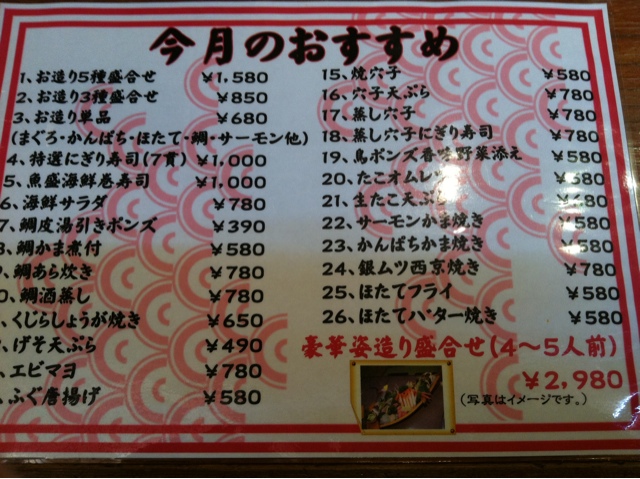 今月のおすすめ
1、お造り5種盛合せ ¥1,580
2、お造り3種盛合せ ¥850
3、お造り単品 ¥680
(まぐろ・かんぱち・ほたて・鯛・サーモン他)
4、特選にぎり寿司(7貫) ¥1,000
5、魚盛海鮮巻寿司 ¥1,000
6、海鮮サラダ ¥780
7、鯛皮湯引きポンズ ¥390
8、鯛かま煮付 ¥580
、鯛あら炊き ¥780
0、鯛酒蒸し ¥780
、くじらしょうが焼き ¥650
、げそ天ぷら ¥490
、エビマヨ ¥780
、ふぐ唐揚げ ¥580
15、焼穴子 ¥580
16、穴子天ぷら ¥780
17、蒸し穴子 ¥780
18、蒸し穴子にぎり寿司 ¥780
19、鳥ポンズ香味野菜添え ¥580
20、たこオムレツ ¥580
21、生たこ天ぷら
22、サーモンかま焼き ¥580
23、かんぱちかま焼き ¥580
24、銀ムツ西京焼き ¥780
25、ほたてフライ ¥580
26、ほたてバター焼き ¥580
豪華姿造り盛合せ(4〜5人前)
¥2,980
(写真はイメージです。)